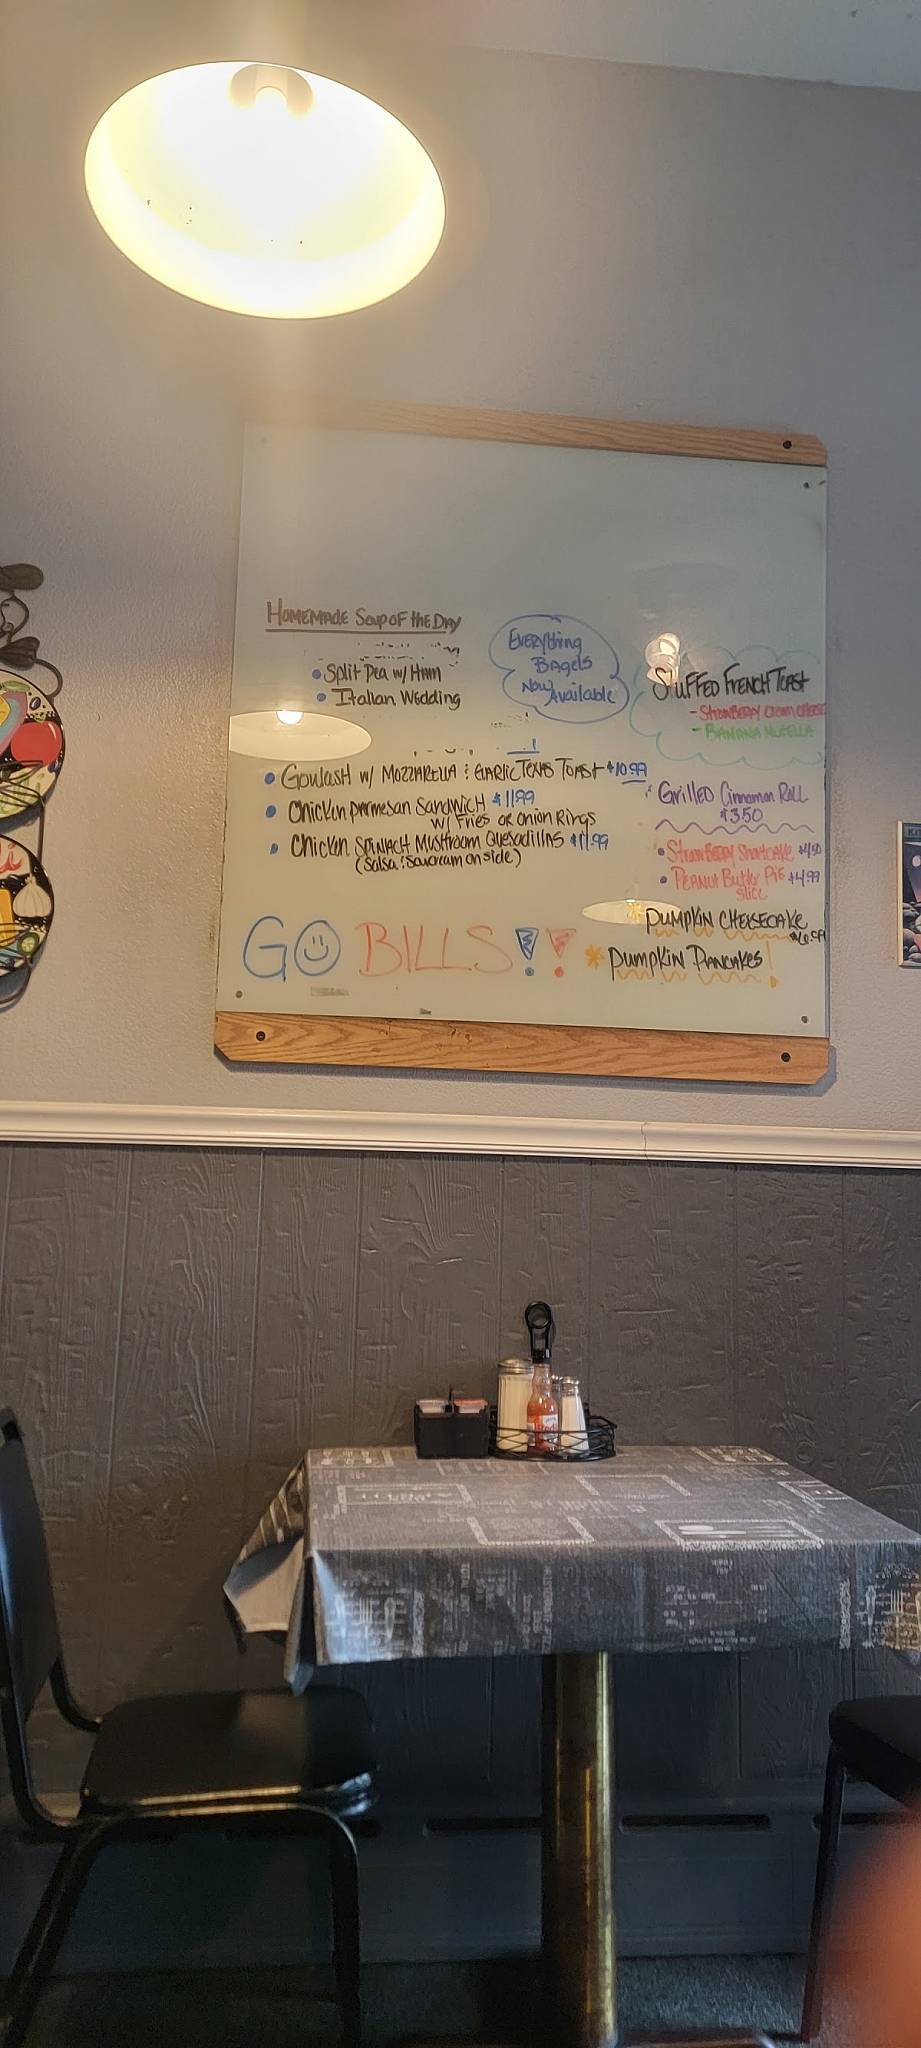 HOMEMADE Soup OF the DAY
Split Pea w/ Ham
Italian Wedding
Everything
Bagels
Now Available
STUFFED FRENCH TOAST
- STRAWBERRY CREAM CHEESE
- BANANA NUTELLA
Goulash w/ MOZZARELLA & GARLIC TEXAS TOAST $10.99
Chicken parmesan SANDWICH $11.99
w/ FRIES OR ONION RINGS
Chicken SPINACH MUSHROOM QUESADILLAS $11.99
(Salsa & Sourcream on side)
Grilled Cinnamon Roll
$3.50
STRAWBERRY SHORTCAKE
PEANUT Butter PiE $4.99
slice
PUMPKIN CHEESECAKE
PUMPKIN PANCAKES!
GO BILLS!!